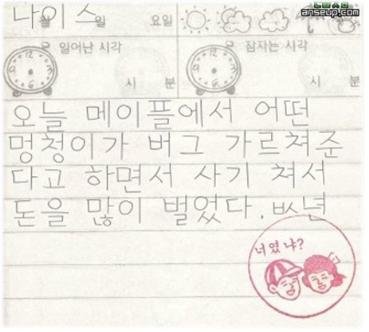 나이스
anseup.com
월 일 요일
일어난 시각 잠자는 시각
시 분 시 분
오늘 메이플에서 어떤
멍청이가 버그 가르쳐준
다고 하면서 사기 쳐서
돈을 많이 벌었다. ㅄ년
너였냐?